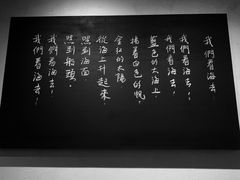 我們看海去
我們看海去！
我們看海去！
藍色的大海上
揚着白色的帆，
金紅的太陽
從海上升起來，
照到海面
照到船頭，
我們看海去！
我們看海去！